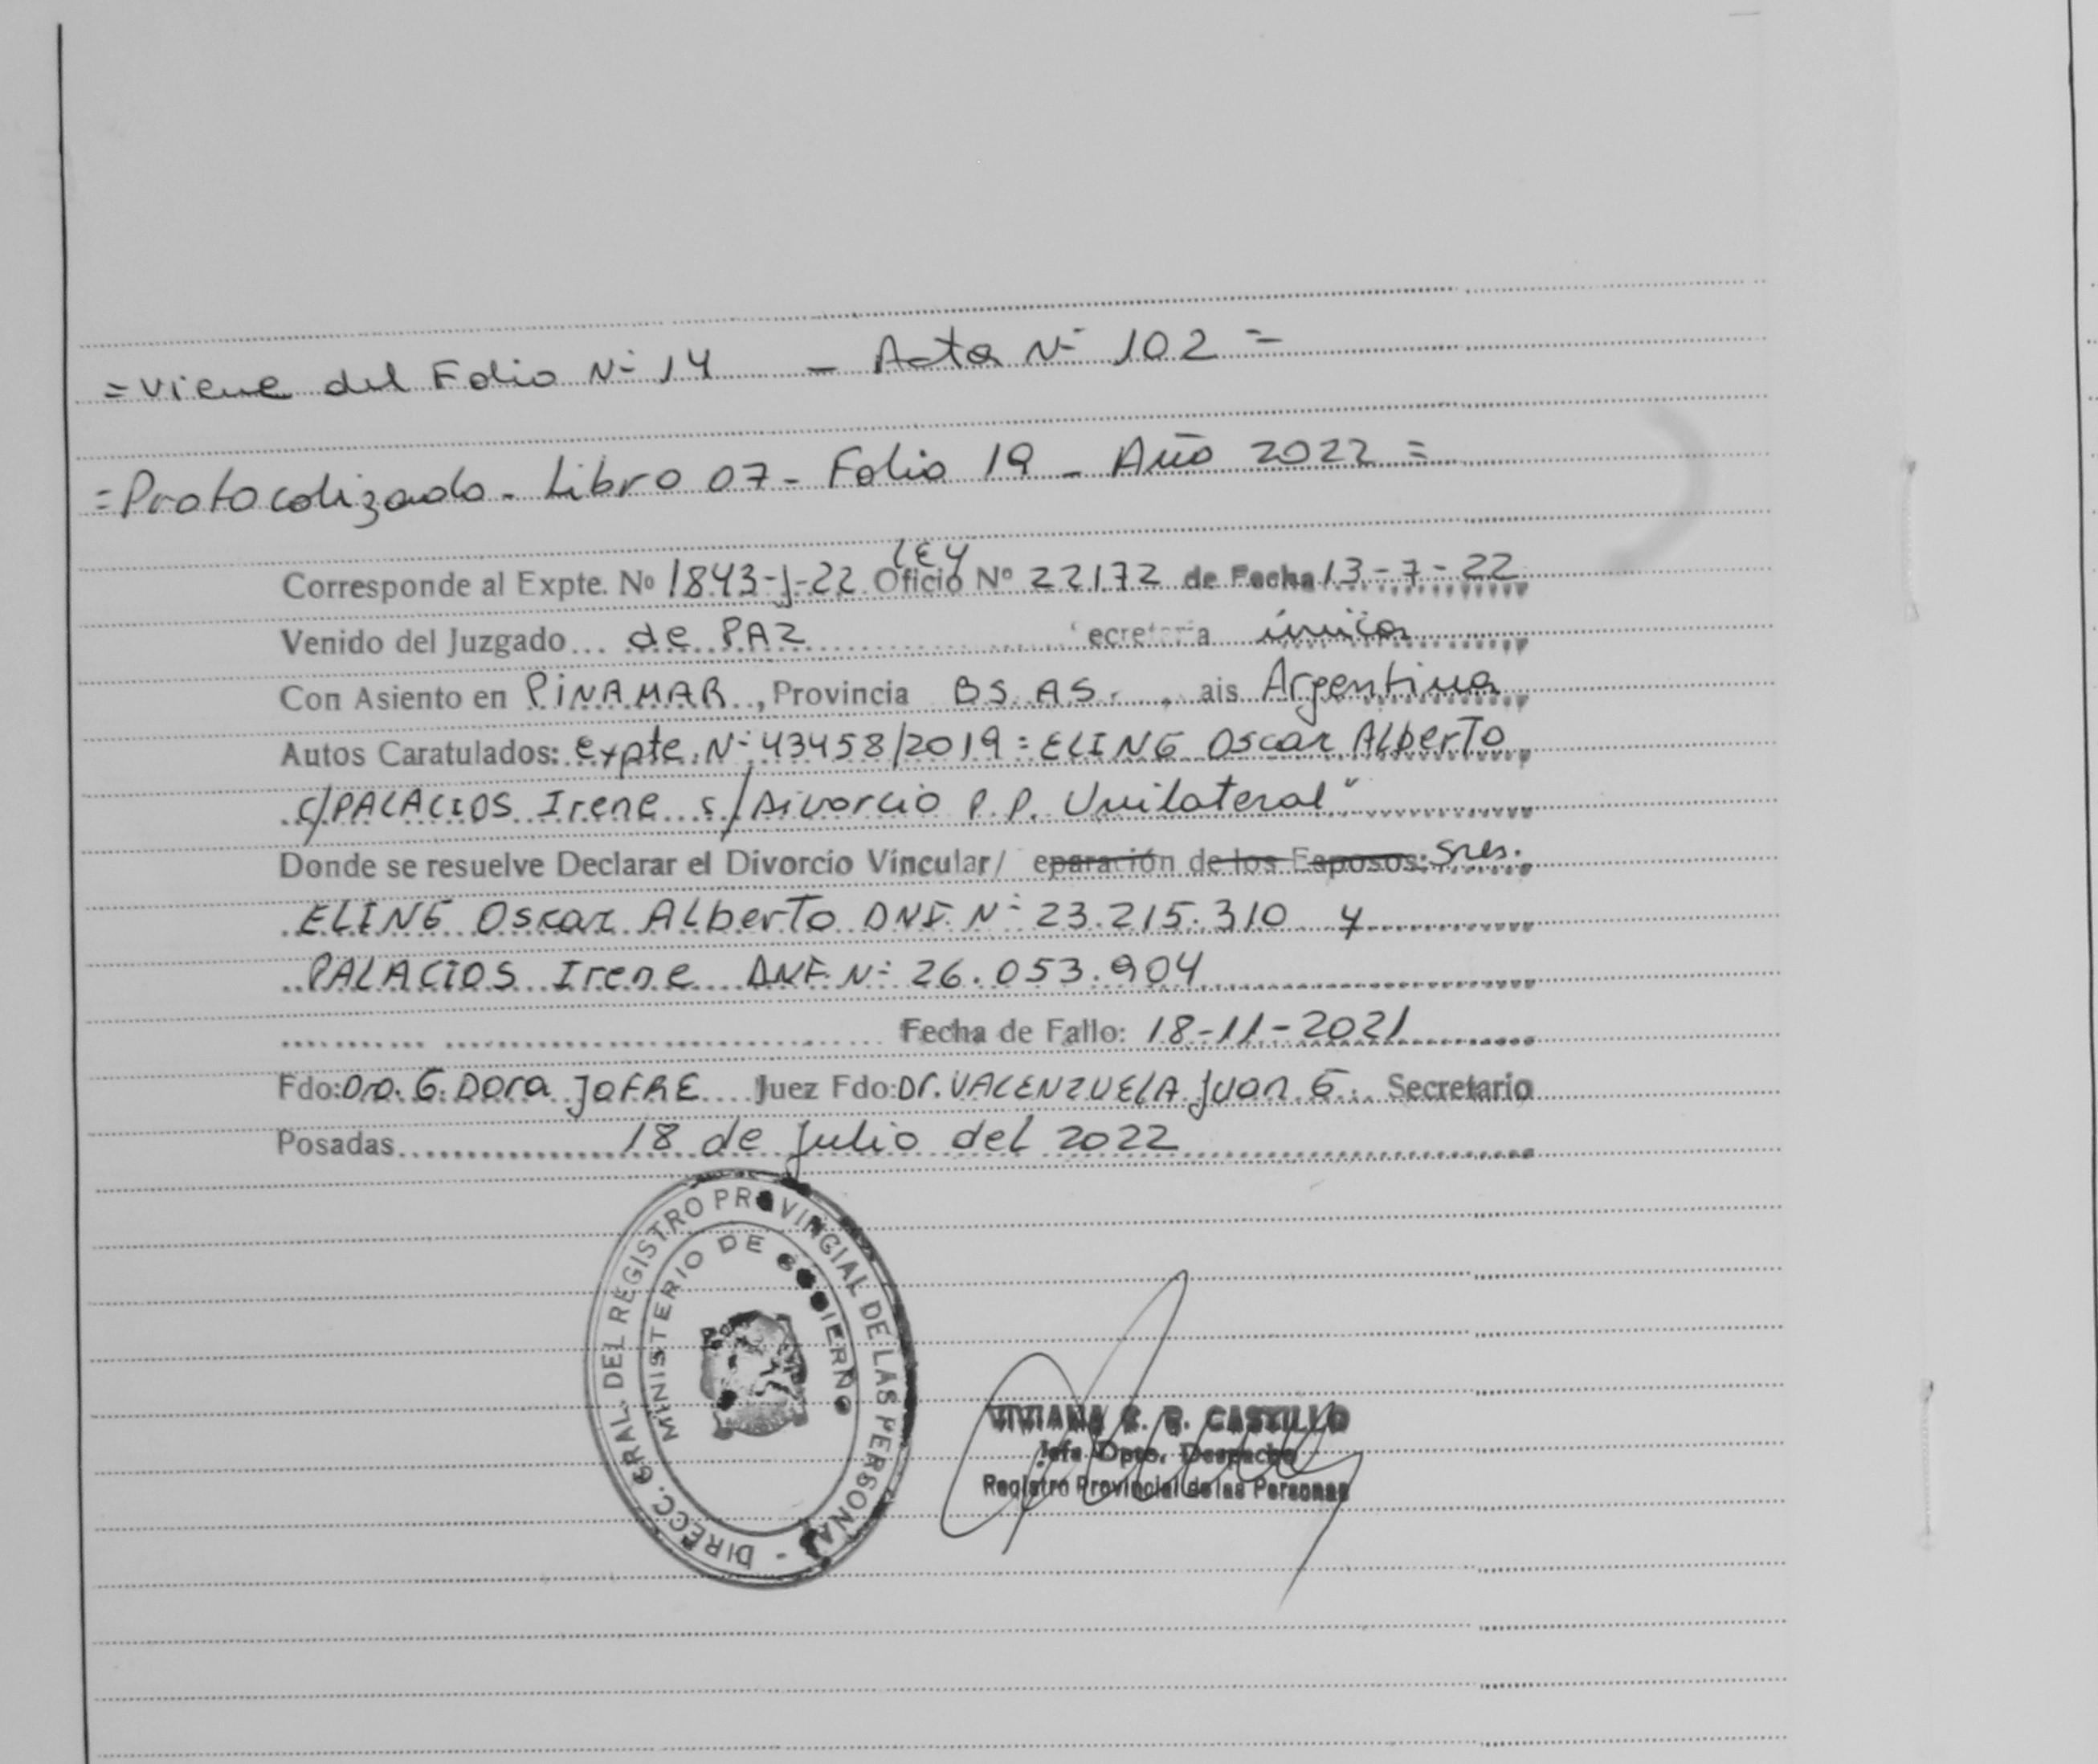 = Viene del Folio Nº 14 - Acta Nº 102 =
= Protocolizado - Libro 07 - Folio 19 - Año 2022 =
LEY
Corresponde al Expte. Nº 1843-J-22 Oficio Nº 22172 de Fecha 13-7-22
Venido del Juzgado... de PAZ ecretaría única
Con Asiento en PINAMAR, Provincia BS. AS., ais Argentina
Autos Caratulados: expte. Nº 43458/2019 = ELING Oscar Alberto
c/PALACIOS Irene s/Divorcio P.P. Unilateral"
Donde se resuelve Declarar el Divorcio Vincular/ eparación de los Esposos: Sres.
ELING Oscar Alberto DNI. Nº 23.215.310 y
PALACIOS Irene DNI. Nº 26.053.904
Fecha de Fallo: 18-11-2021
Fdo: Dra. G. Dora JOFRE Juez Fdo: Dr. VALENZUELA Juan G. Secretario
Posadas 18 de Julio del 2022
DIRECC. GRAL. DEL REGISTRO PROVINCIAL DE LAS PERSONAS -
MINISTERIO DE GOBIERNO
VIVIANA CASTILLO
Jefa Dpto. Despacho
Registro Provincial de las Personas